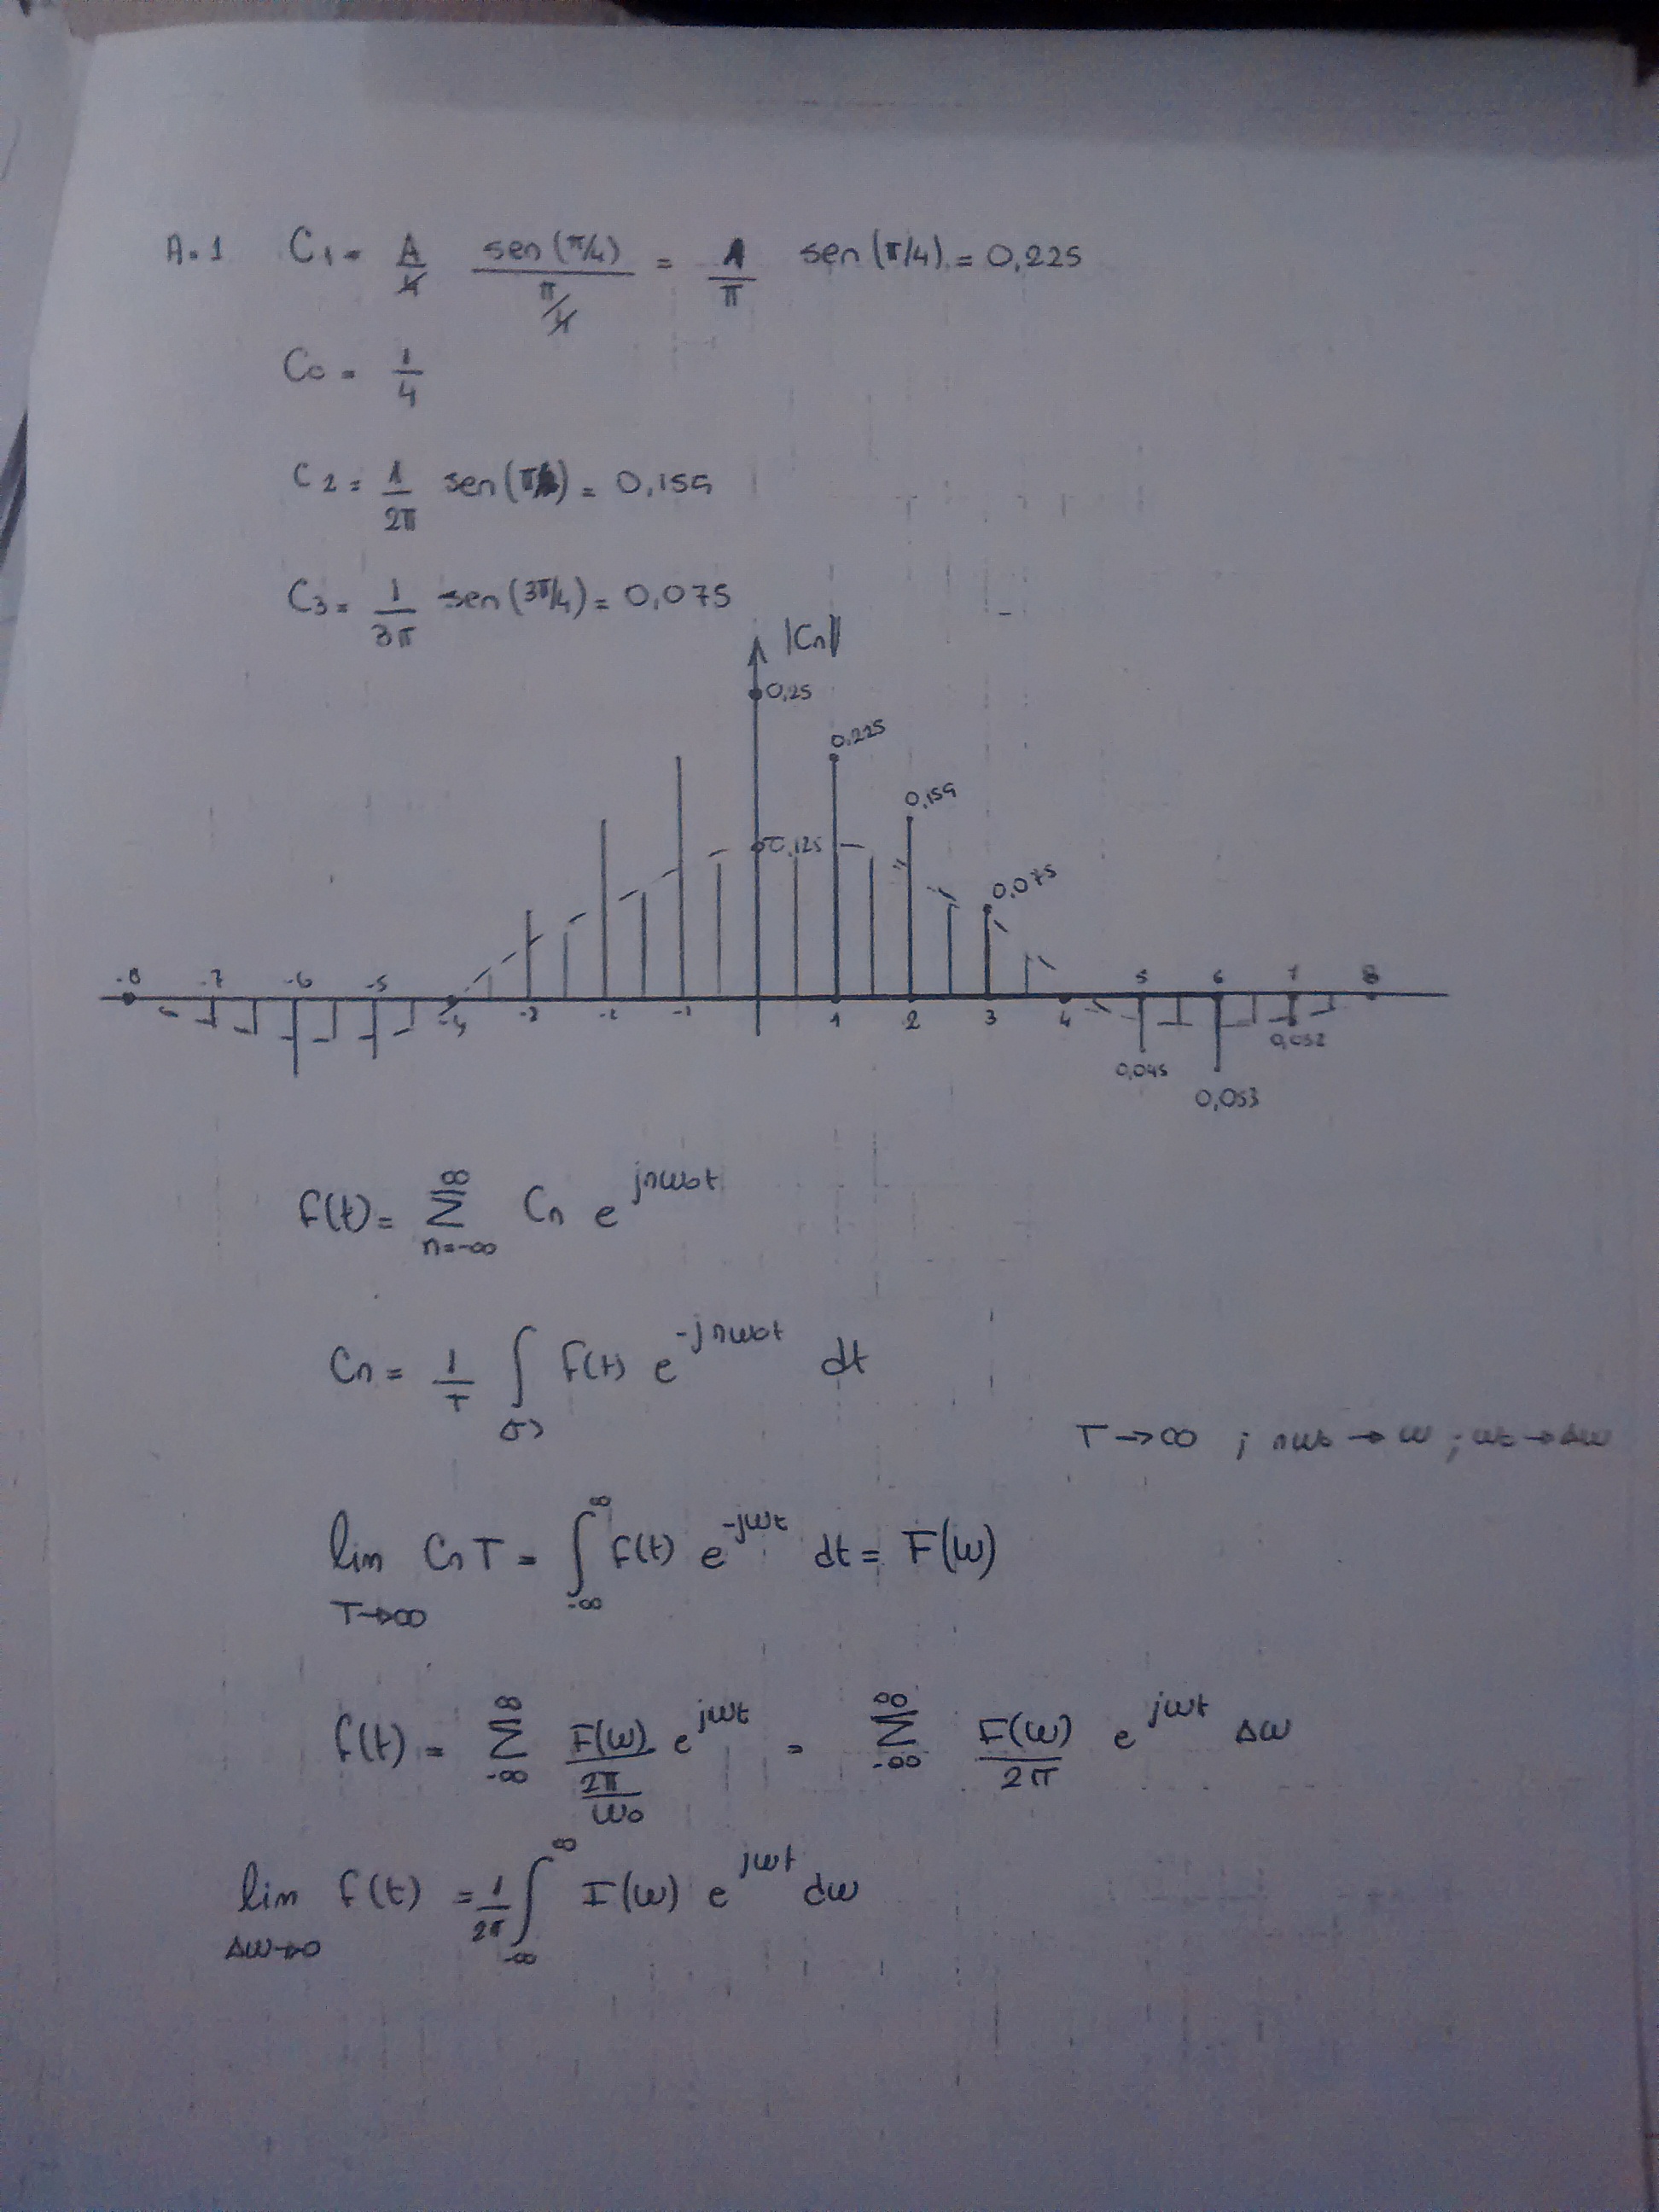 A=1 C₁ = A/4 sen(π/4)/(π/4) = 1/π sen(π/4) = 0,225
C₀ = 1/4
C₂ = 1/2π sen(π/2) = 0,159
C₃ = 1/3π sen(3π/4) = 0,075
|Cn|
0,25
0,225
0,159
0,125
0,075
-8 -7 -6 -5 -4 -3 -2 -1 1 2 3 4 5 6 7 8
0,045 0,053 0,032
f(t) = ∑_{n=-∞}^{∞} Cn e^{jnω₀t}
Cn = 1/T ∫_{(T)} f(t) e^{-jnω₀t} dt
T→∞ ; nω₀ → ω ; ω₀ → Δω
lim_{T→∞} CnT = ∫_{-∞}^{∞} f(t) e^{-jωt} dt = F(ω)
f(t) = ∑_{-∞}^{∞} F(ω)/(2π/ω₀) e^{jωt} = ∑_{-∞}^{∞} F(ω)/2π e^{jωt} Δω
lim_{Δω→0} f(t) = 1/2π ∫_{-∞}^{∞} F(ω) e^{jωt} dω